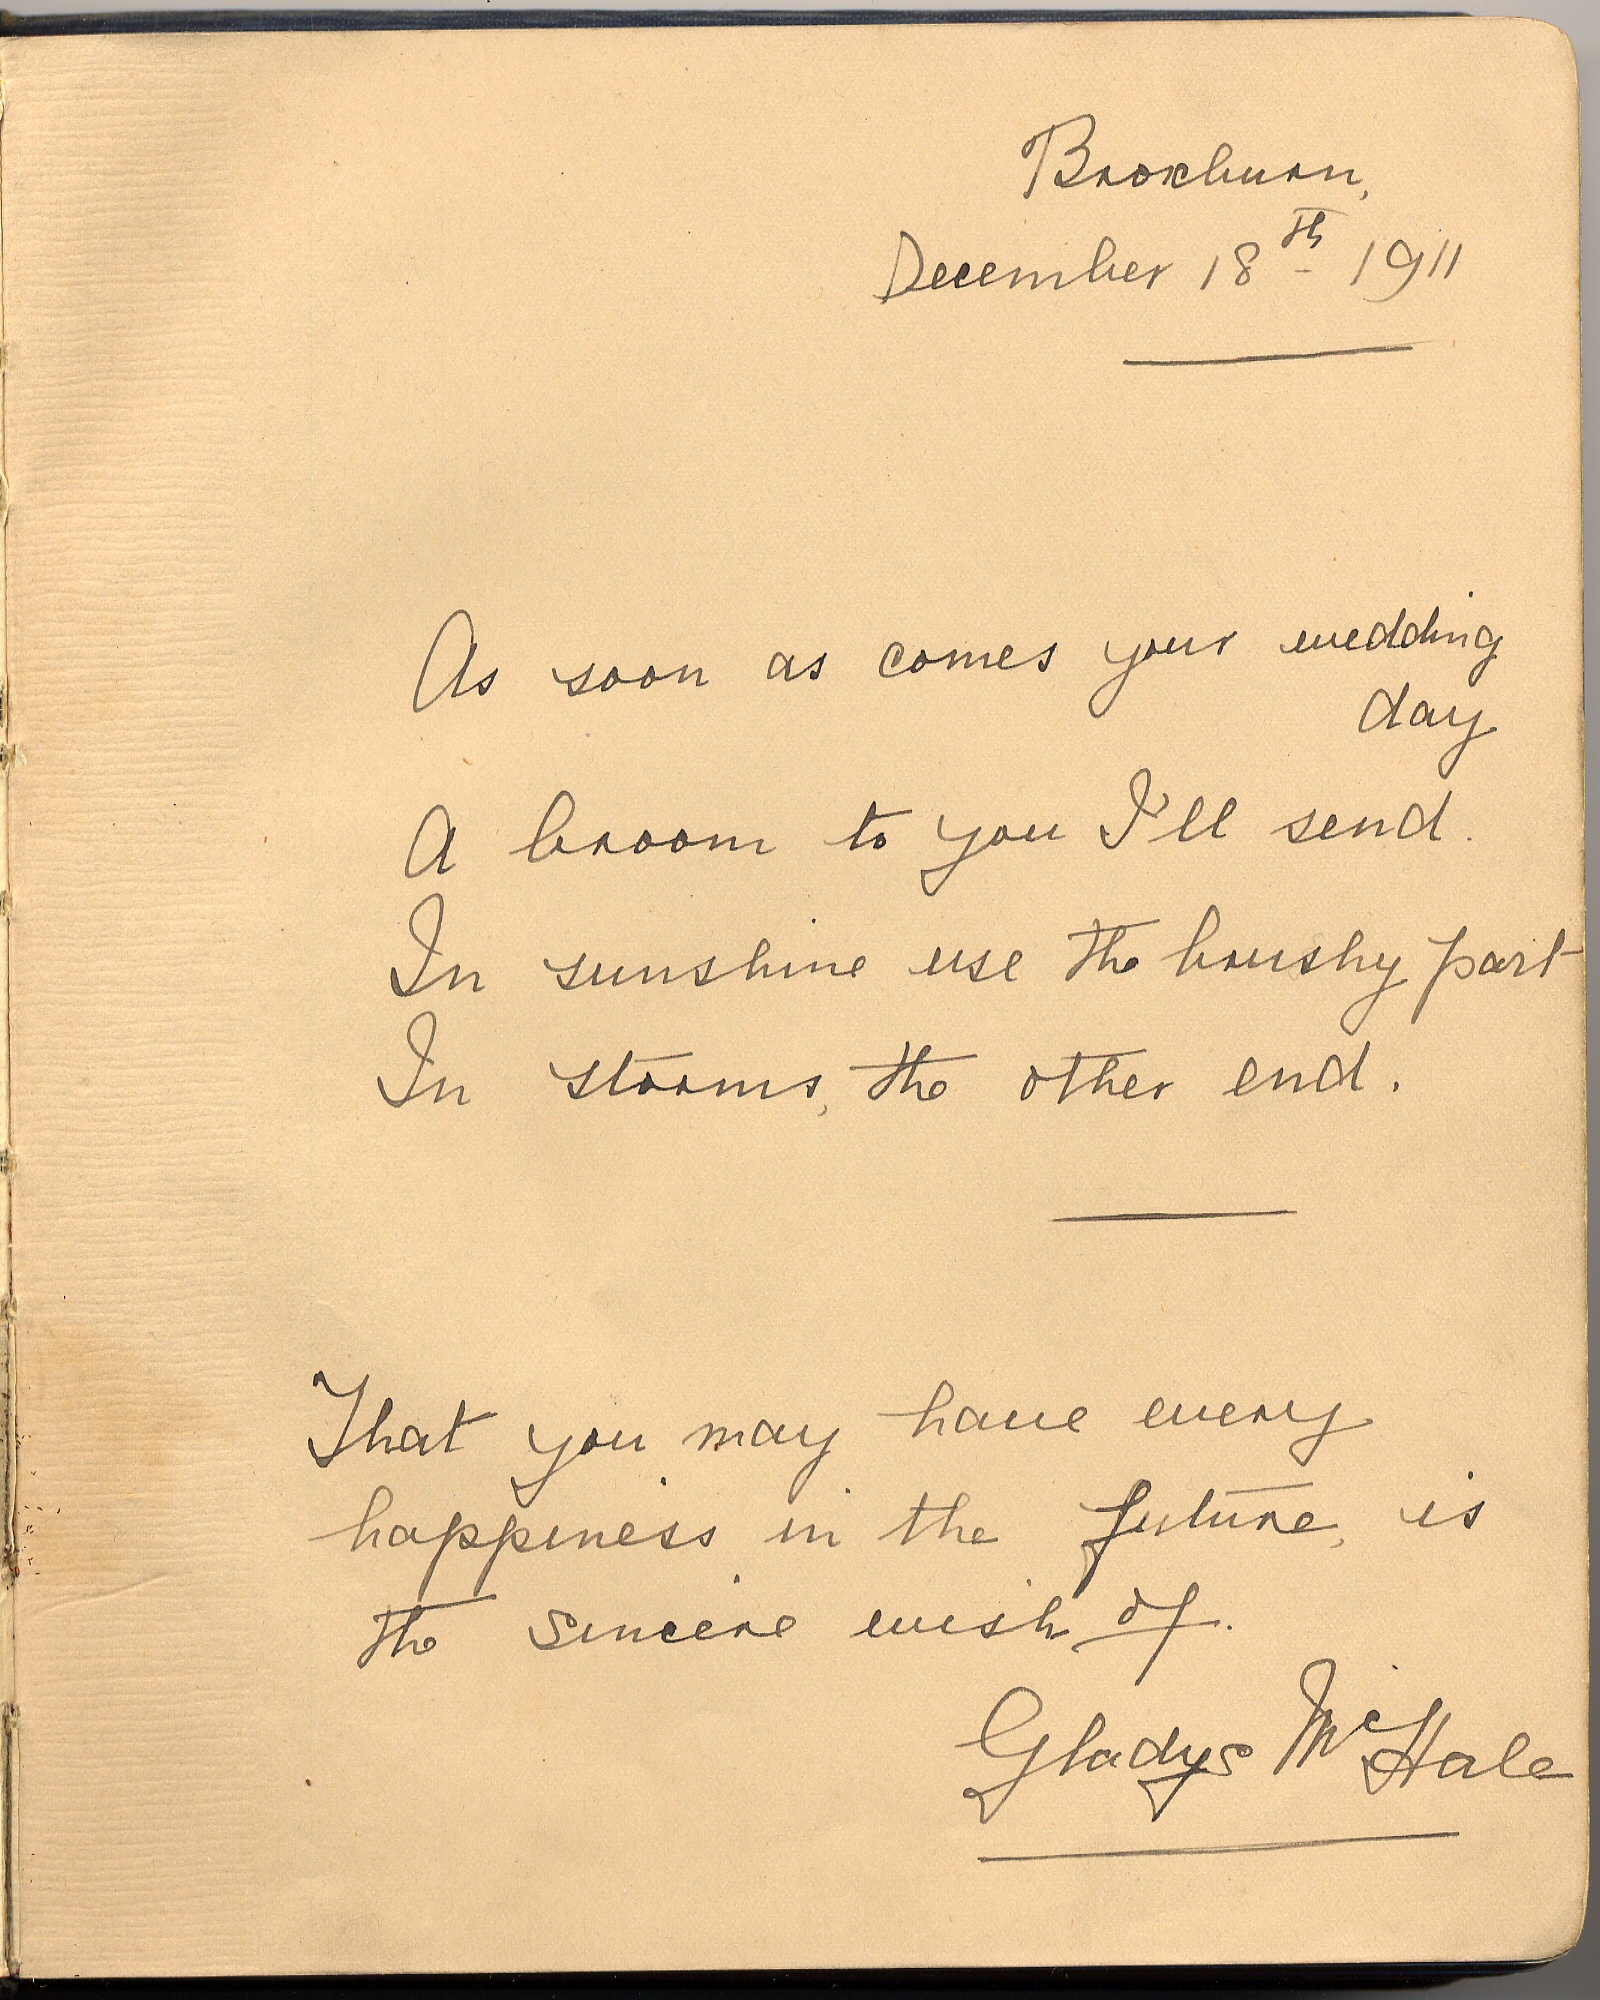 Broxburn,
December 18th 1911
As soon as comes your wedding
day
A broom to you I'll send.
In sunshine use the brushy part
In storms, the other end.
That you may have every
happiness in the future, is
the sincere wish of.
Gladys McHale